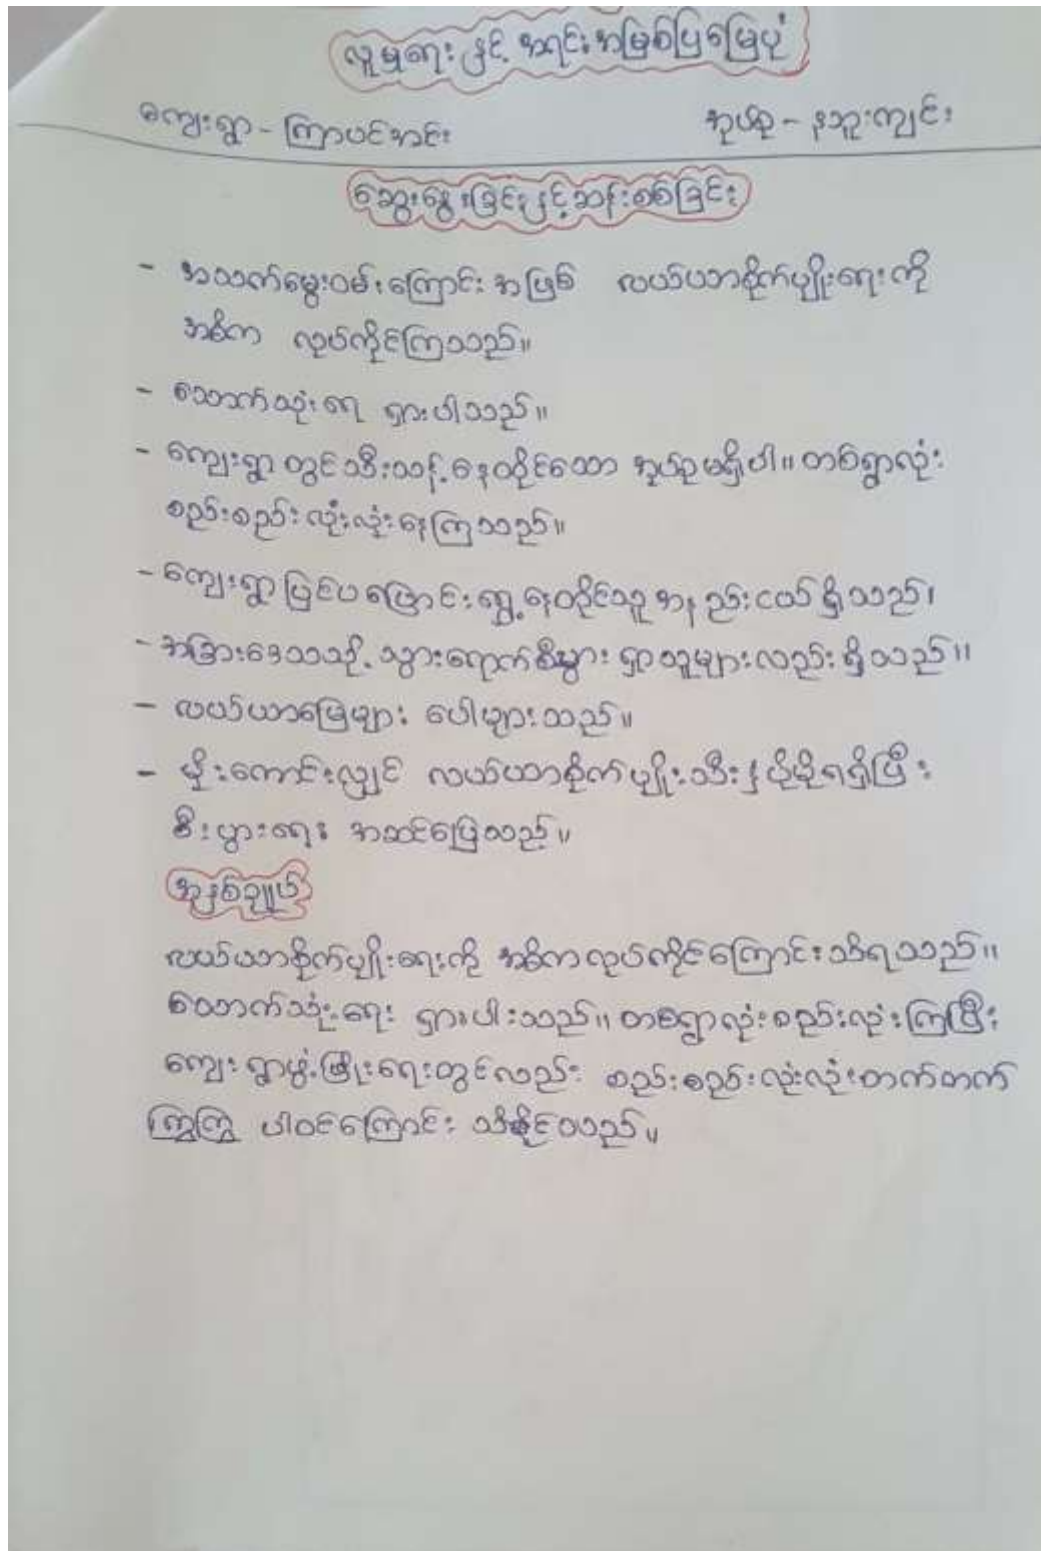 လူမှုရေးနှင့် အရင်းအမြစ်ပြမြေပုံ
ကျေးရွာ - ကြာပင်အင်း အုပ်စု - နဘူးကျင်း
ဆွေးနွေးခြင်းနှင့်ဆန်းစစ်ခြင်း
- အသက်မွေးဝမ်းကြောင်းအဖြစ် လယ်ယာစိုက်ပျိုးရေးကို
အဓိက လုပ်ကိုင်ကြသည်။
- သောက်သုံးရေ ရှားပါသည်။
- ကျေးရွာတွင်သီးသန့်နေထိုင်သော အုပ်စုမရှိပါ။ တစ်ရွာလုံး
စည်းစည်းလုံးလုံးနေကြသည်။
- ကျေးရွာပြင်ပပြောင်းရွှေ့နေထိုင်သူ အနည်းငယ်ရှိသည်၊
- အခြားဒေသသို့ သွားရောက်စီးပွား ရှာသူများလည်း ရှိသည်။
- လယ်ယာမြေများ ပေါများသည်။
- မိုးကောင်းလျှင် လယ်ယာစိုက်ပျိုးသီးနှံပိုမိုရရှိပြီး
စီးပွားရေး အဆင်ပြေသည်။
အနှစ်ချုပ်
လယ်ယာစိုက်ပျိုးရေးကို အဓိကလုပ်ကိုင်ကြောင်းသိရသည်။
သောက်သုံးရေး ရှားပါးသည်။ တစ်ရွာလုံးစည်းလုံးကြပြီး
ကျေးရွာဖွံ့ဖြိုးရေးတွင်လည်း စည်းစည်းလုံးလုံးတက်တက်
ကြွကြွ ပါဝင်ကြောင်း သိနိုင်သည်။